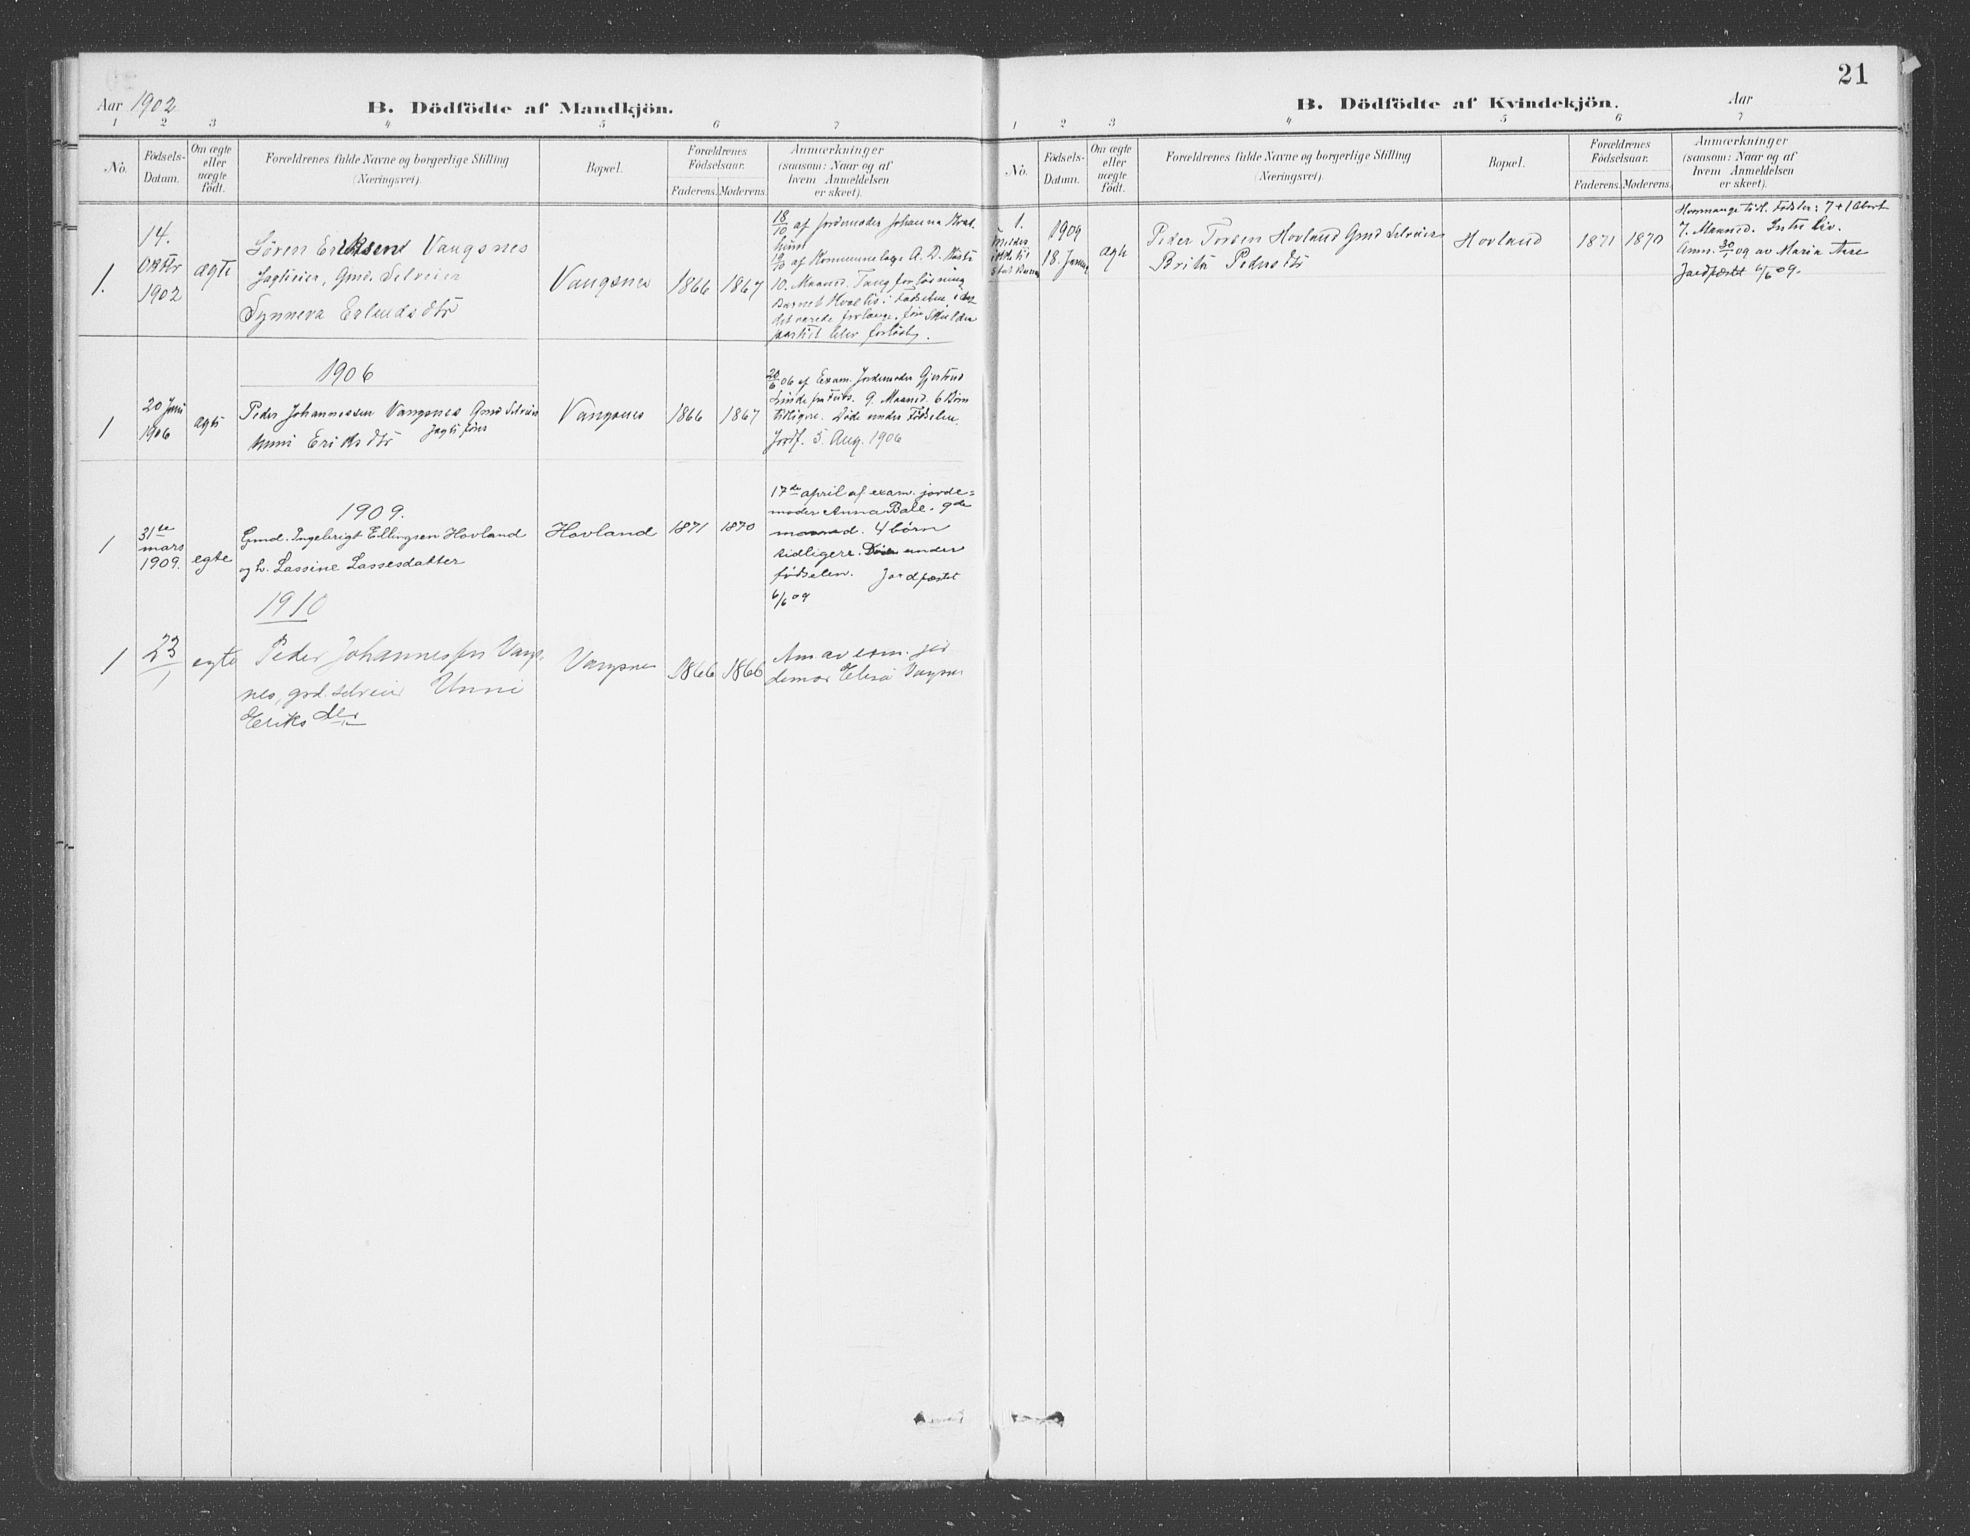 Aar 1902
B. Dödfödte af Mandkjön.
1 2 3 4 5 6 7
No.
Födsels-Datum.
Om ægte eller uægte født.
Forældrenes fulde Navne og borgerlige Stilling (Næringsvei).
Bopæl.
Forældrenes Födselsaar.
Faderens. Moderens.
Anmærkninger (saasom: Naar og af hvem Anmeldelsen er skeet).
1.
14. Oktbr 1902
ægte
Søren Eriksen Vangsnes
Jagteier, Gmd. Selveier
Synneva Erlendsdtr
Vangsnes
1866 1867
18/10 af Jordemoder Johanna
19/10 af Kommunelæge A. D.
10. Maaned. Tang forløsning
Barnet Havde Liv i Fødselen,
det varede forlænge, før Skulder
partiet blev forløst.
1906
1
20 Juni 1906
ægte
Peder Johannessen Vangsnes Gmd Selveier
Unni Eriksdtr Jagtfører
Vangsnes
1866 1867
20/6 06 af Exam. Jordemoder Gjertrud
Linde fra 9. Maaned. 6 Børn
tidligere. Døde under Fødselen.
Jordf. 5. Aug. 1906
1909.
1
31te mars 1909.
egte
Gmd. Ingebrigt Ellingsen Hovland
og h. Lassine Lassesdatter
Hovland
1871 1870
17de april af exam. jorde=
moder Anna Bale. 9de
maaned. 4 børn
tidligere. Døde under
fødselen. Jordfæstet
6/6 09
1910
1
23/1
egte
Peder Johannessen Vangs-
nes, grd. selveier Unni
Eriksdtr
Vangsnes
1866 1866
Anm av exm. jor
demor Elisa Vangsnes
21
B. Dödfödte af Kvindekjön.
Aar
1 2 3 4 5 6 7
No.
Födsels-Datum.
Om ægte eller uægte født.
Forældrenes fulde Navne og borgerlige Stilling (Næringsvei).
Bopæl.
Forældrenes Födselsaar.
Faderens. Moderens.
Anmærkninger (saasom: Naar og af hvem Anmeldelsen er skeet).
1.
1909
18. Januar
ægte
Peder Torsen Hovland Gmd Selveier
Brita Pedersdtr
Hovland
1871 1870
Hvormange tidl. Fødsler: 7 + 1 Abort
7. Maaned. Intet Liv.
Anm. 30/1 09 av Maria
Jordfæstet 6/6 09.